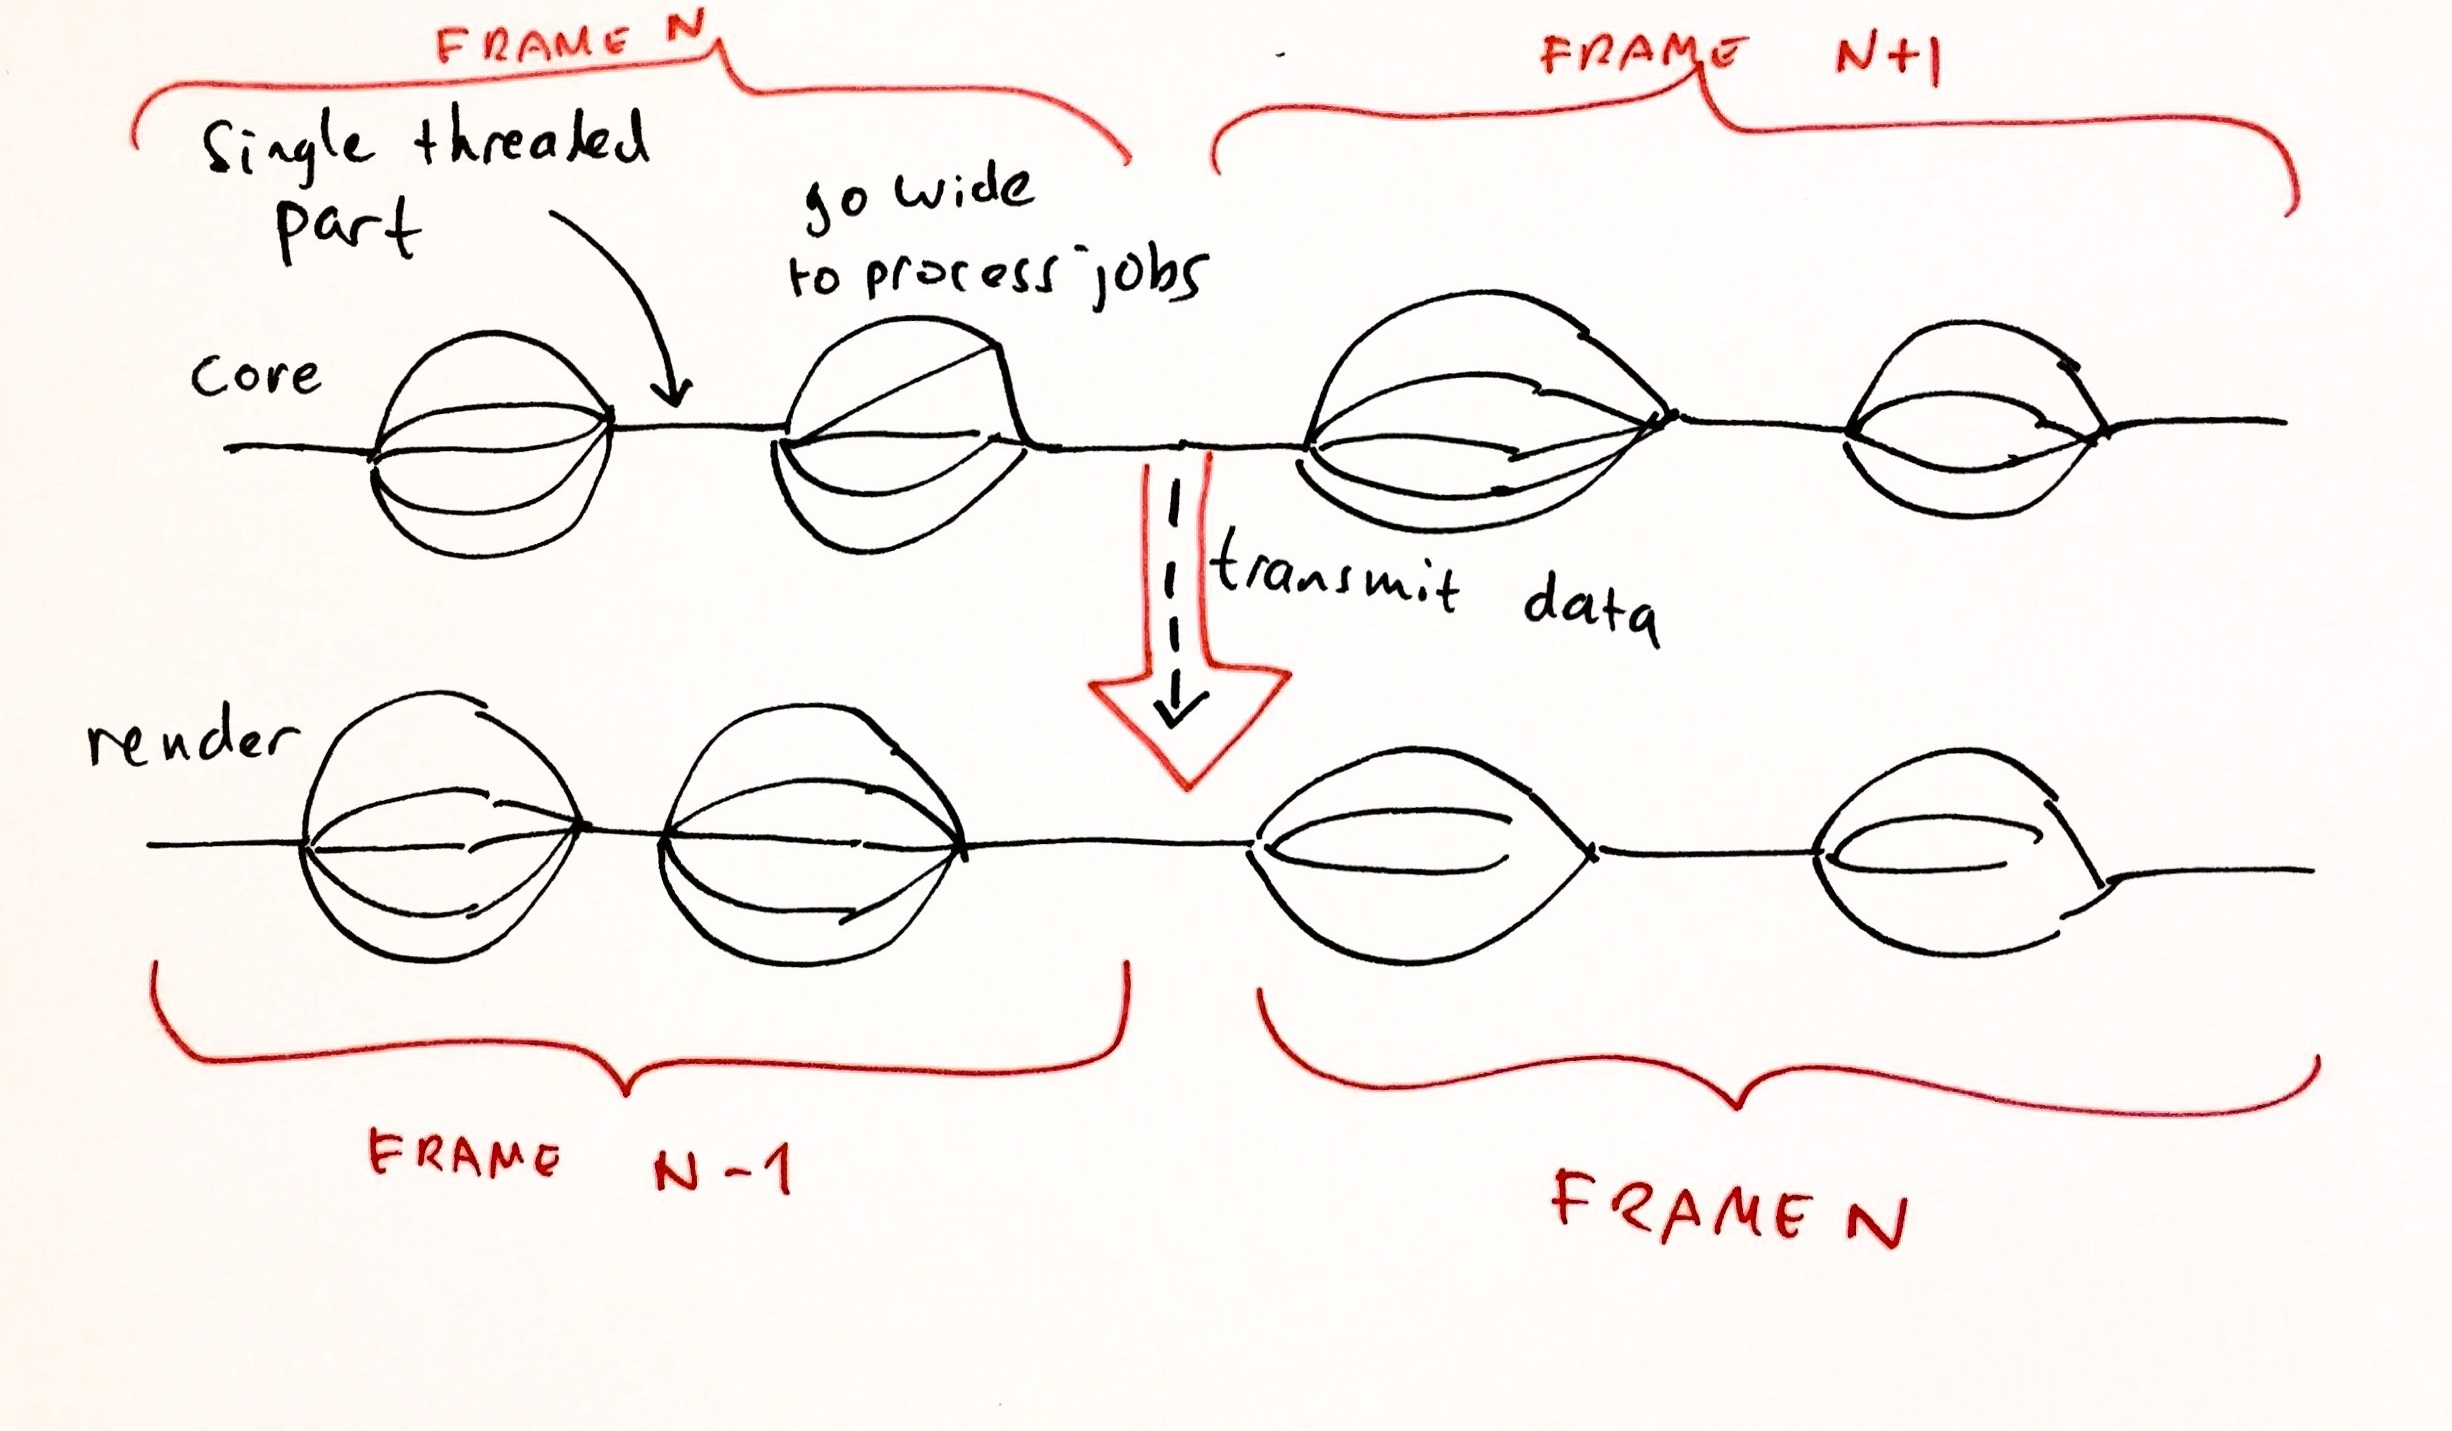 FRAME N
FRAME N+1
Single threaded
part
go wide
to process jobs
core
transmit data
render
FRAME N-1
FRAME N